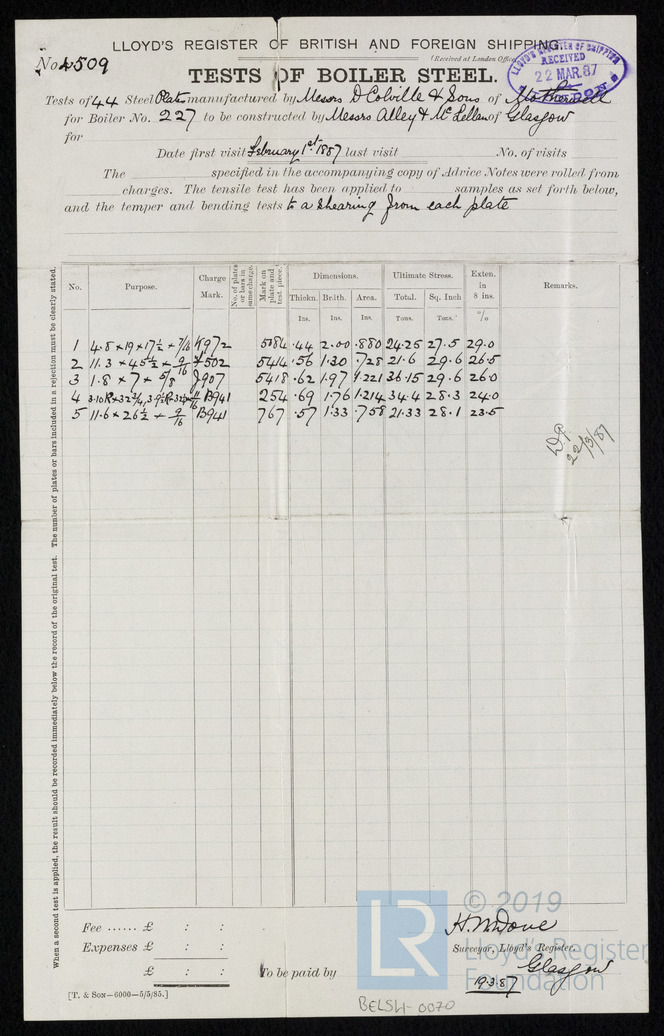 No 4509
LLOYD'S REGISTER OF BRITISH AND FOREIGN SHIPPING.
(Received at London Office
LLOYD'S REGISTER OF SHIPPING
RECEIVED
22 MAR. 87
LONDON
TESTS OF BOILER STEEL.
Tests of 44 Steel Plates manufactured by Messrs D Colville & Sons of Motherwell
for Boiler No. 227 to be constructed by Messrs Alley & McLellan of Glasgow
for
Date first visit February 1st 1887 last visit No. of visits
The specified in the accompanying copy of Advice Notes were rolled from
charges. The tensile test has been applied to samples as set forth below,
and the temper and bending tests to a shearing from each plate
No. Purpose. Charge Mark. No. of plates or bars in same charge. Mark on plate and test piece. Dimensions. Ultimate Stress. Exten. in 8 ins. Remarks.
Thickn. Br.ith. Area. Total. Sq. Inch
Ins. Ins. Ins. Tons. Tons. %
1 4.8 × 19 × 17½ × 7/16 K972 5084 .44 2.00 .880 24.25 27.5 29.0
2 11.3 × 45½ × 9/16 502 5414 .56 1.30 .728 21.6 29.6 26.5
3 1.8 × 7 × 5/8 J907 5418 .62 1.97 1.221 36.15 29.6 26.0
4 B941 254 .69 1.76 1.214 34.4 28.3 24.0
5 11.6 × 26½ × 9/16 B941 767 .57 1.33 .758 21.33 28.1 23.5
22/3/87
When a second test is applied, the result should be recorded immediately below the record of the original test. The number of plates or bars included in a rejection must be clearly stated.
Fee ...... £ : :
Expenses £ : :
£ : : To be paid by
Surveyor, Lloyd's Register.
Glasgow
19.3.87
[T. & SON—6000—5/5/85.]
LR
© 2019
Lloyd's Register
Foundation
BELSH-0070